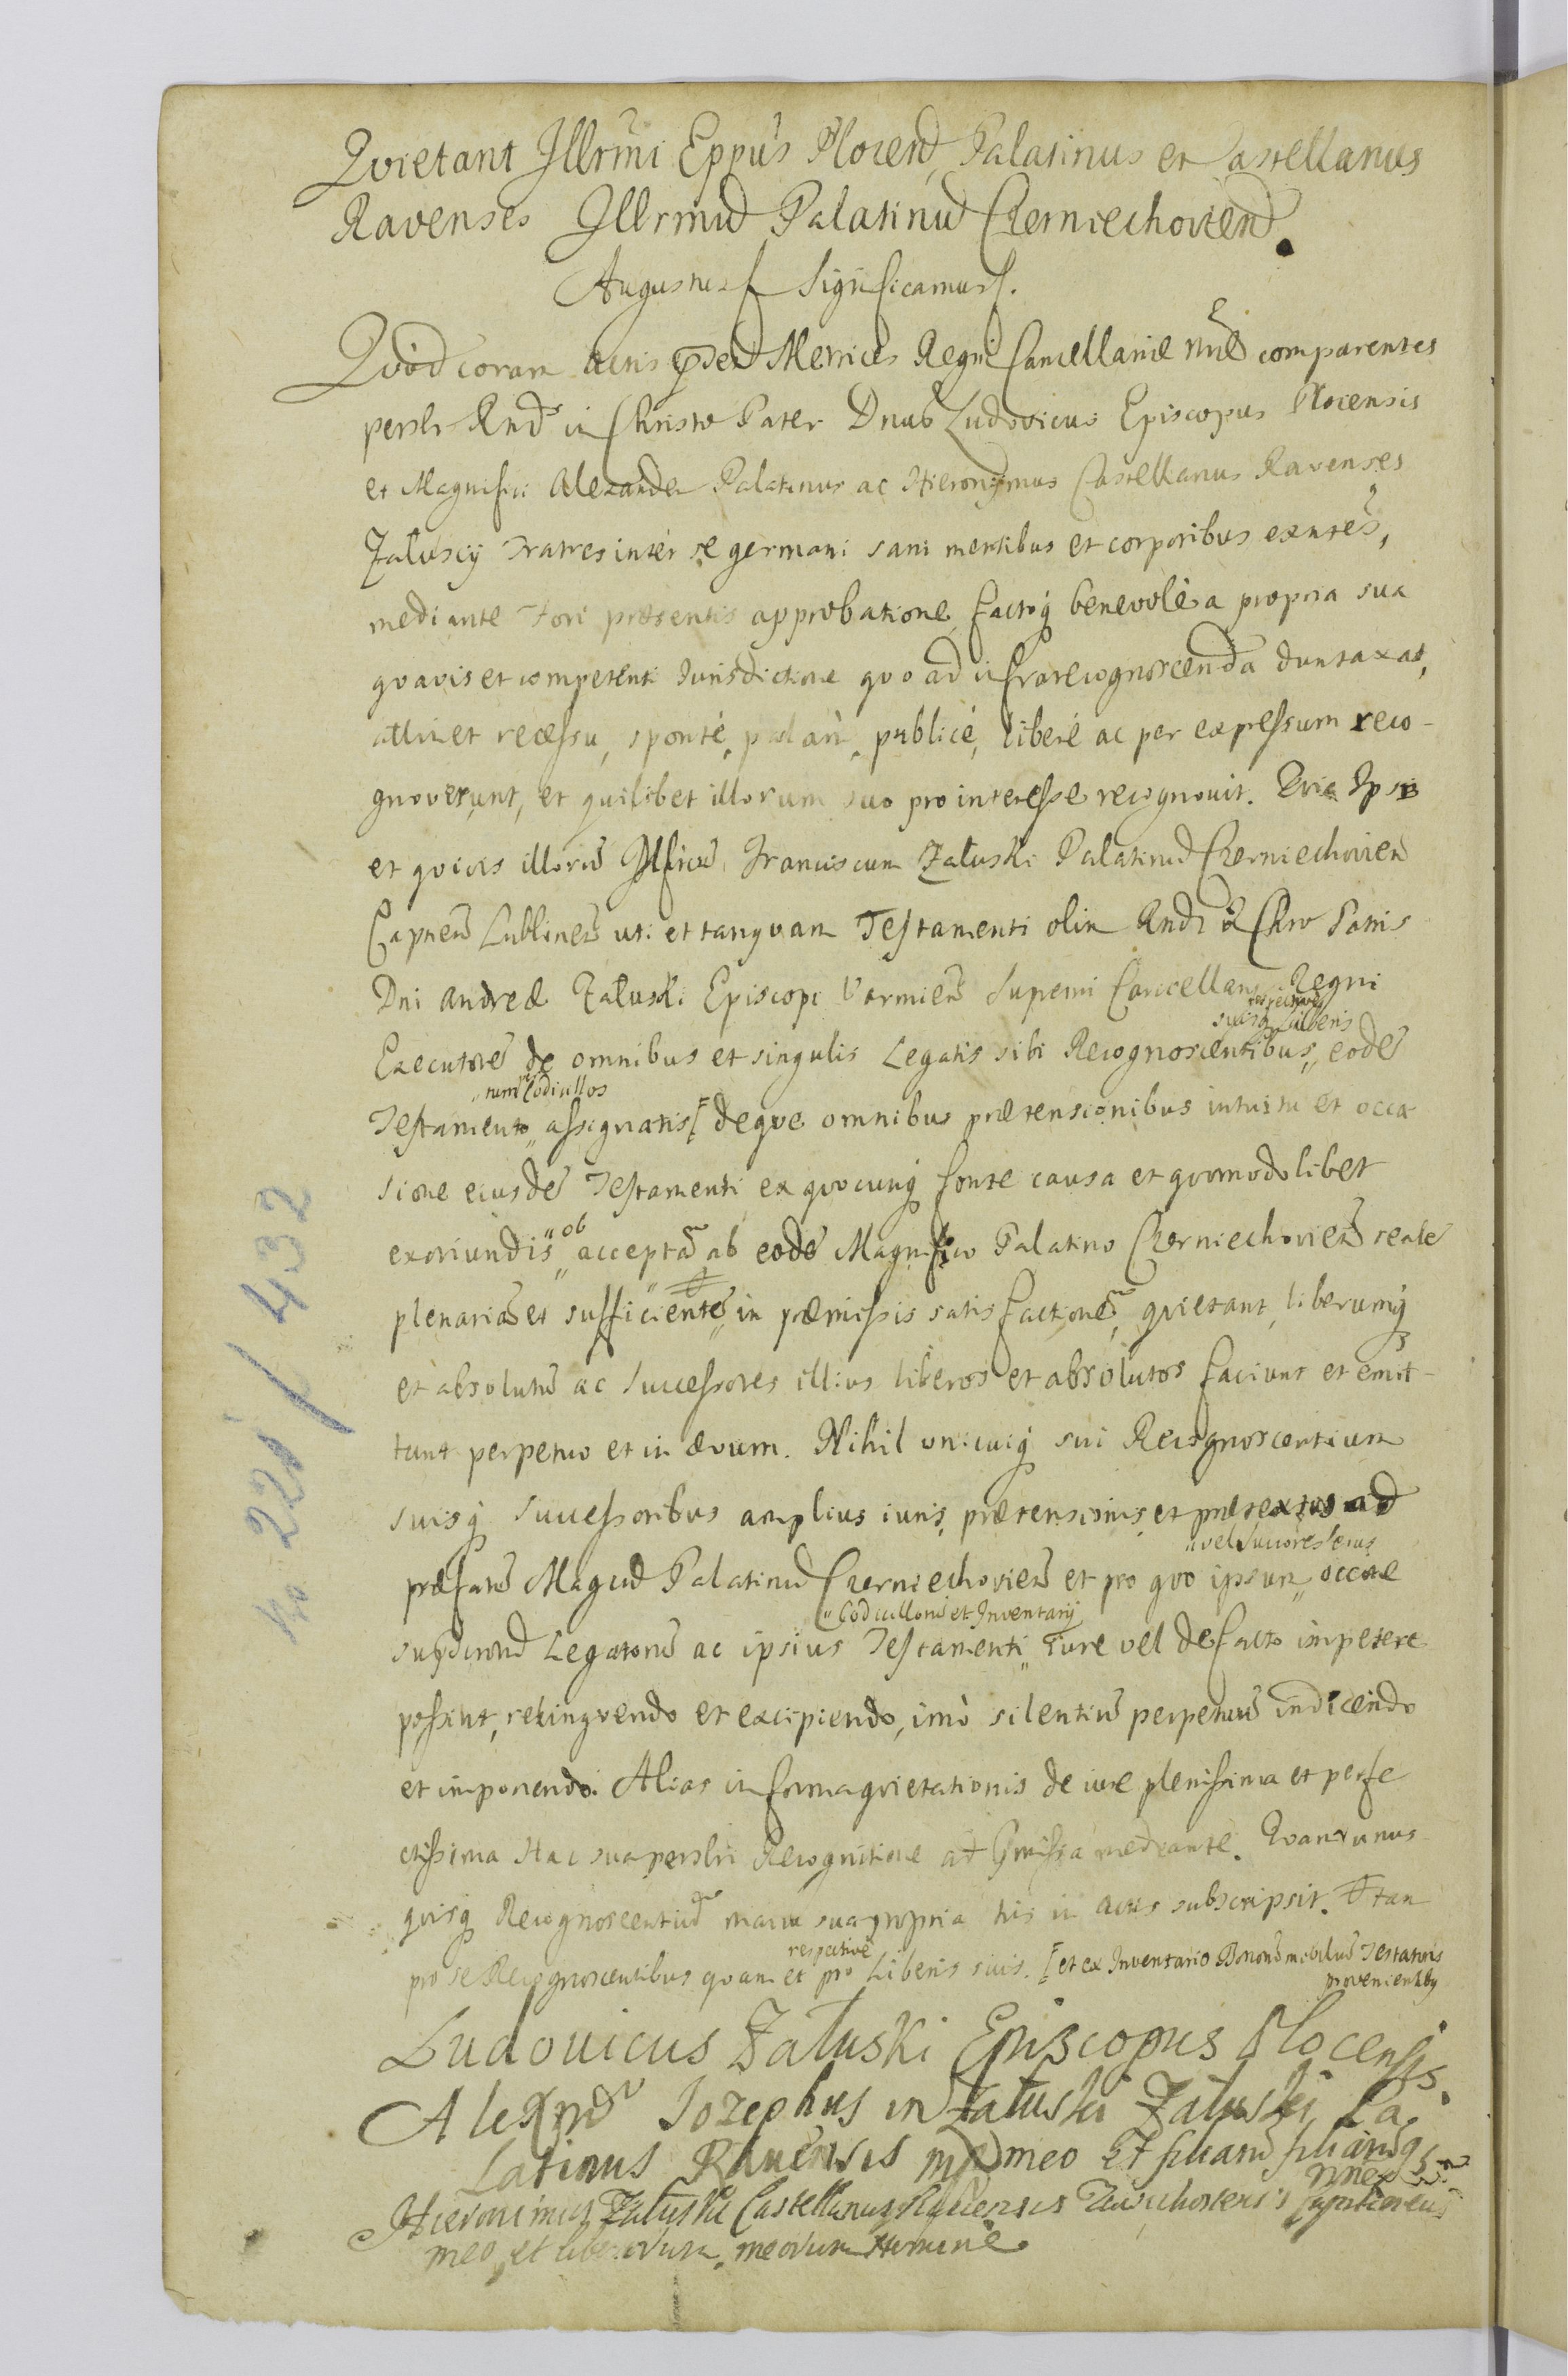 Qvietant Jllrmi Eppus Plocen Palatinus et Castellanus
Ravenses Jllrmu Palatinu Czerniechovien.
Augustus Significamus.
Qvod coram Actis Metrices Regni Cancellariæ comparentes
persлr Rnds in Christo Pater Dnus Ludovicus Episcopus Plocensis
et Magnifici Alexander Palatinus ac Hieronymus Castellanus Ravenses
Załuscij Fratres inter se germani sani mentibus et corporibus exntes,
mediante Fori præsentis approbatione factoq benevole a propria sua
qvavis et competenti Jurisdictione qvo ad infrarecognoscenda duntaxat,
attinet recessu, sponte, palam, publicè, liberè ac per expressum reco-
gnoverunt, et quilibet illorum suo pro interesse recognovit. Qvia Ipsi
et qvivis illoru Franciscum Załuski Palatinu Czerniechovien
Capneu Lublinen uti et tanqvam Testamenti olim Rndi in Chro Patris
Dni Andreæ Załuski Episcopi Varmien Supremi Cancellarij Regni
respective
suisq Liberis
Executore de omnibus et singulis Legatis sibi Recognoscentibus, eode
Codicillos
Testamento assignatis deqve omnibus prætensionibus intuitu et occa
sione eiusde Testamenti ex qvocunq fonte causa et qvomodolibet
exoriundis ob accepta ab eode Magnifico Palatino Czerniechovien reale
plenaria et sufficiente in præmissis satisfactione, qvietant, liberumq
et absolutu ac Successores illius liberos et absolutos faciunt et emit-
tunt perpetuo et in ævum. Nihil unicuiq sui Recognoscentium
suisq Successoribus amplius iuris, prætensionis, et prætextus ad
vel Succores eius
præfatu Magcu Palatinu Czerniechovien et pro qvo ipsum, occone
Codicilloru et Inventarij
Legatoru ac ipsius Testamenti iure vel de facto impetere
possint, relinqvendo et excipiendo, imò silentiu perpetuu indicendo
et imponendo. Alias in forma qvietationis de iure plenissima et perfe
ctissima Hac sua Recognitione ad præmissa mediante. Qvam unus
qvisq Recognoscentiu manu sua propria his in Actis subscripsit. tam
respective
pro se Recognoscentibus qvam et pro Liberis suis. et ex Inventario Bonoru mobiliu Testatoris
provenientiby
Ludovicus Załuski Episcopus Plocensis.
Alexndr Jozephus in Załuski Załuski Pa
latinus Ravensis mp meo et
nne
Hieronimus Załuski Castellanus Ravensis
meo, et liberorum meorum Nomine.
no 220 / 432